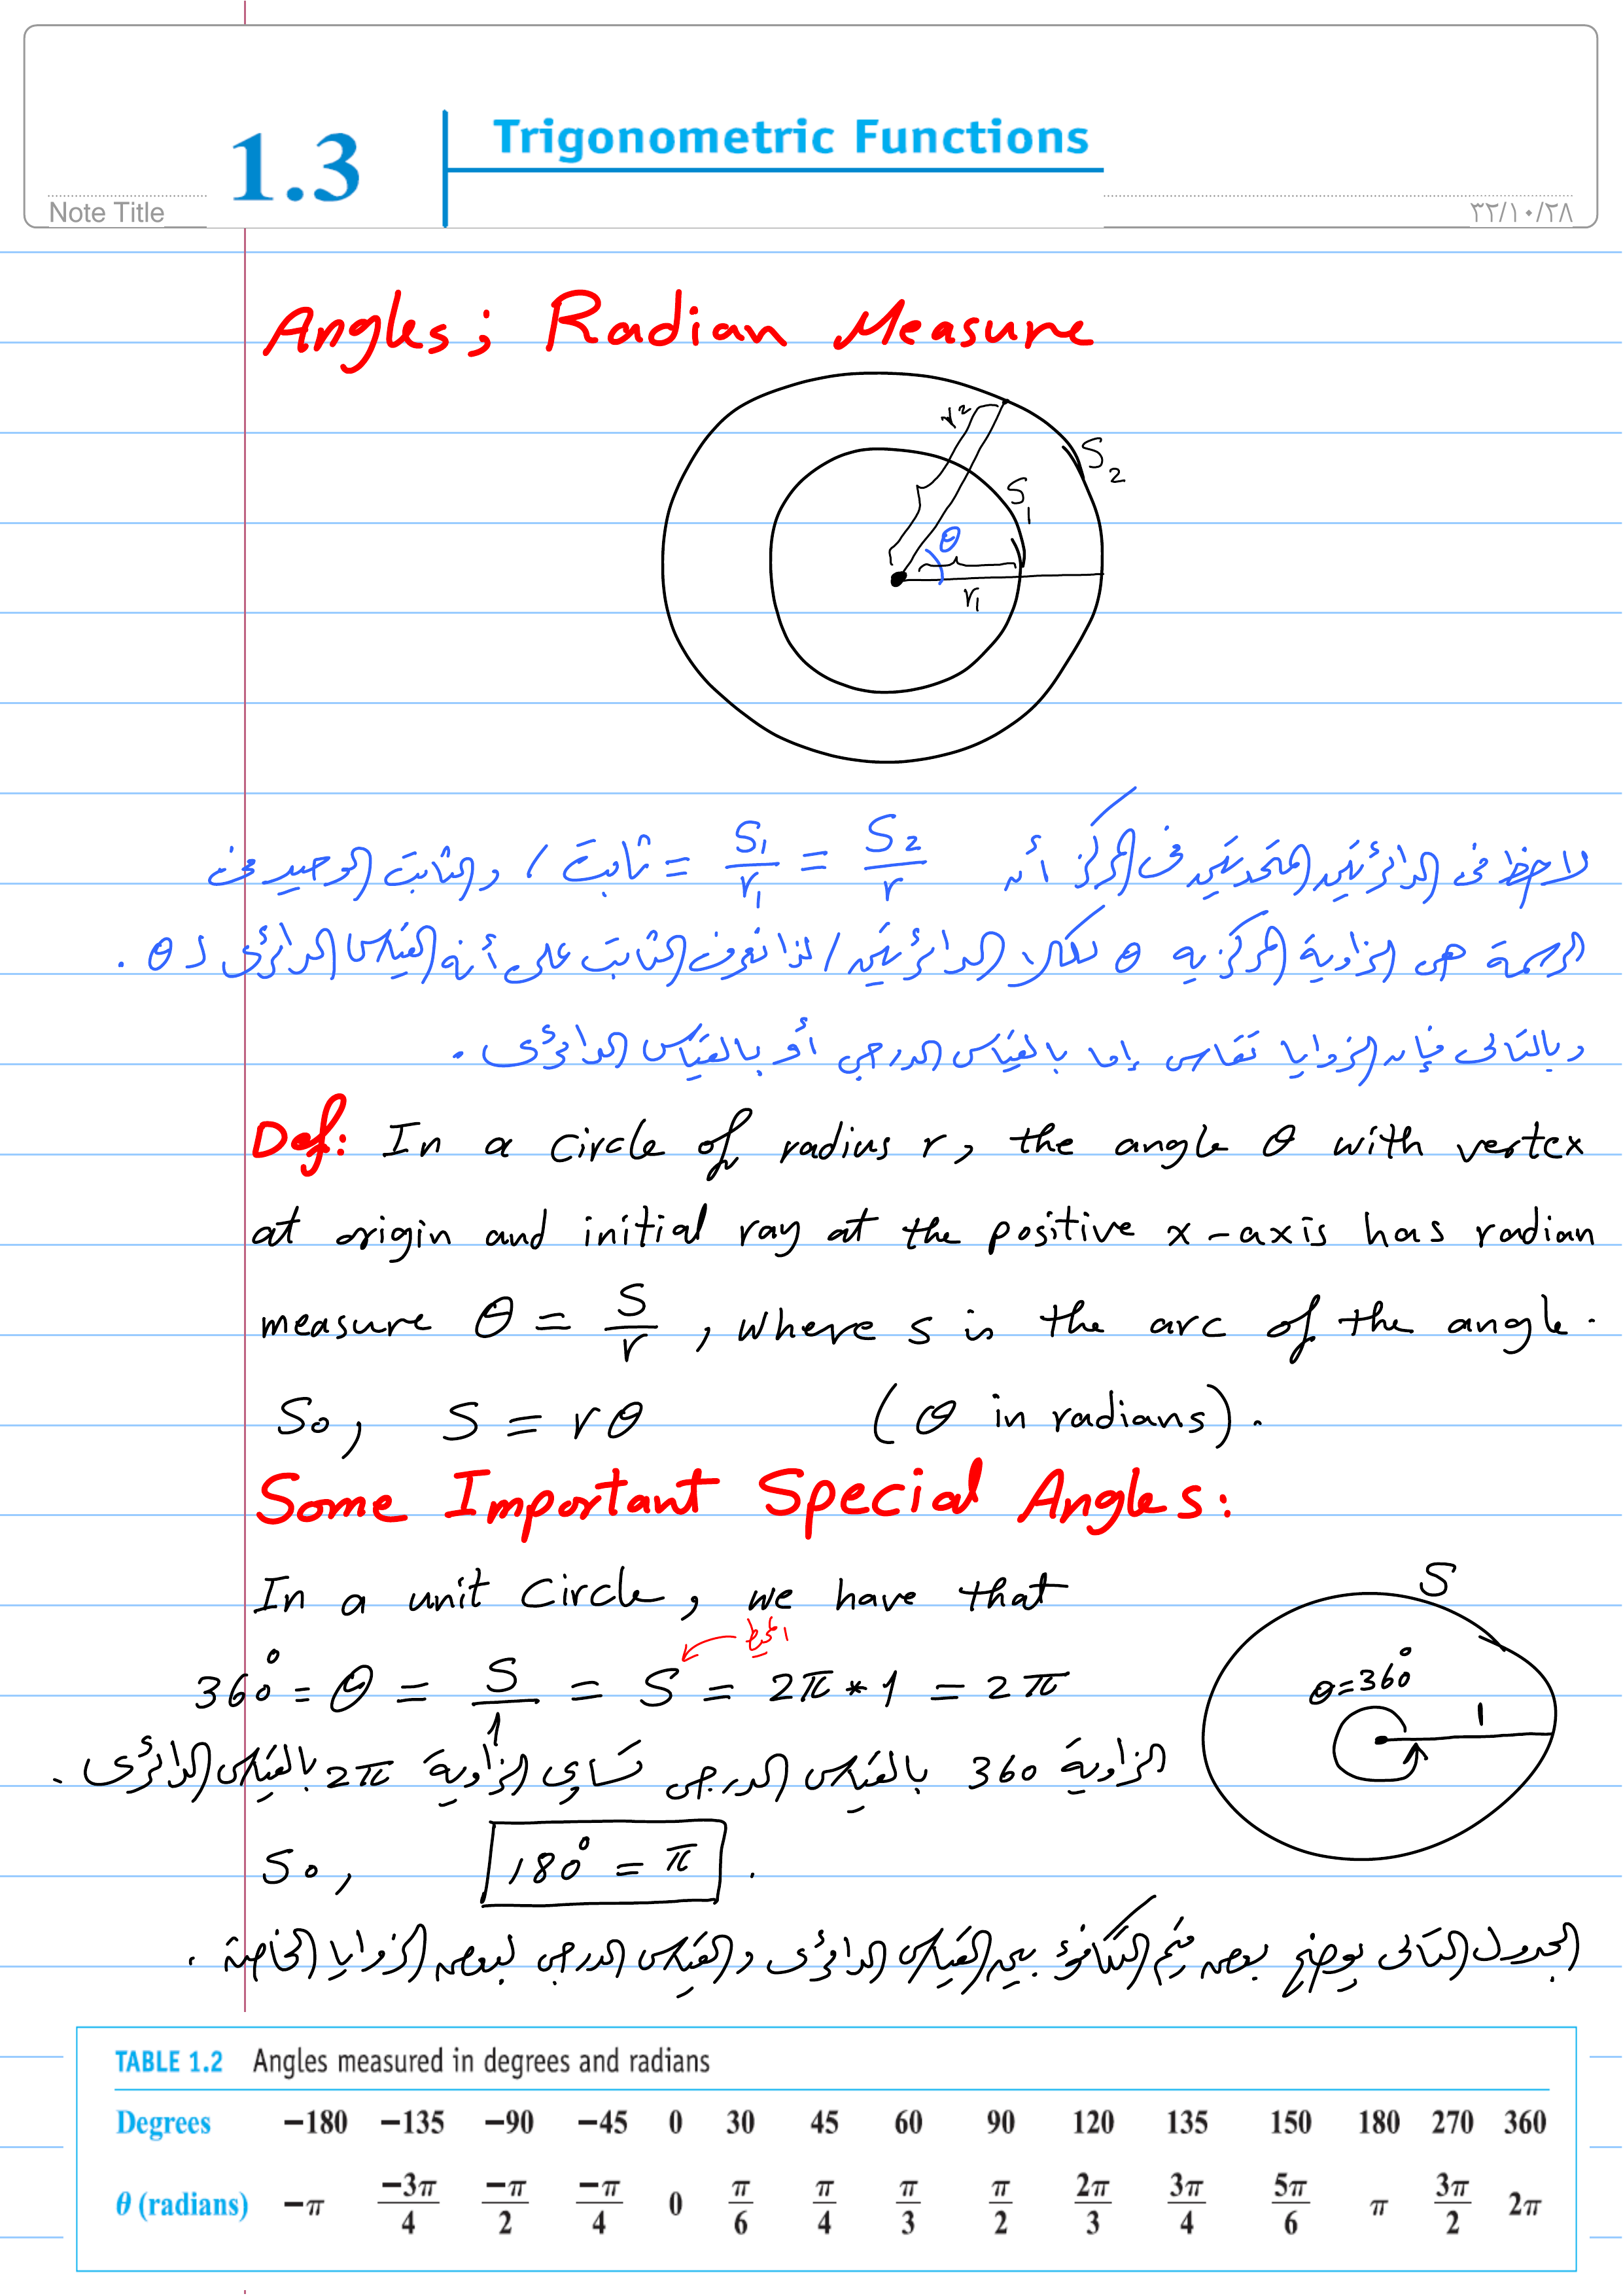 1.3 Trigonometric Functions
Note Title
٣٢/١٠/٢٨
Angles; Radian Measure
r2
S2
S1
θ
r1
لاحظ فى الدائرتين المتحدتين فى المركز أن S2/r = S1/r1 = ثابت ، والثابت الوحيد فى
الرسمة هى الزاوية المركزية θ لكلا الدائرتين ، لذا نعرف الثابت على أنه القياس الدائرى لـ θ .
وبالتالى فإن الزوايا تقاس إما بالقياس الدرجي أو بالقياس الدائرى .
Def: In a circle of radius r, the angle θ with vertex
at origin and initial ray at the positive x-axis has radian
measure θ = S/r , where s is the arc of the angle.
So, S = rθ (θ in radians).
Some Important Special Angles:
In a unit Circle, we have that
المحيط
360° = θ = S/1 = S = 2π * 1 = 2π
S
θ=360°
1
الزاوية 360 بالقياس الدرجى تساوي الزاوية 2π بالقياس الدائرى .
So, 180° = π .
الجدول التالى يوضح بعض قيم التكافؤ بين القياس الدائرى والقياس الدرجى لبعض الزوايا الخاصة .
TABLE 1.2 Angles measured in degrees and radians
Degrees −180 −135 −90 −45 0 30 45 60 90 120 135 150 180 270 360
θ (radians) −π −3π/4 −π/2 −π/4 0 π/6 π/4 π/3 π/2 2π/3 3π/4 5π/6 π 3π/2 2π